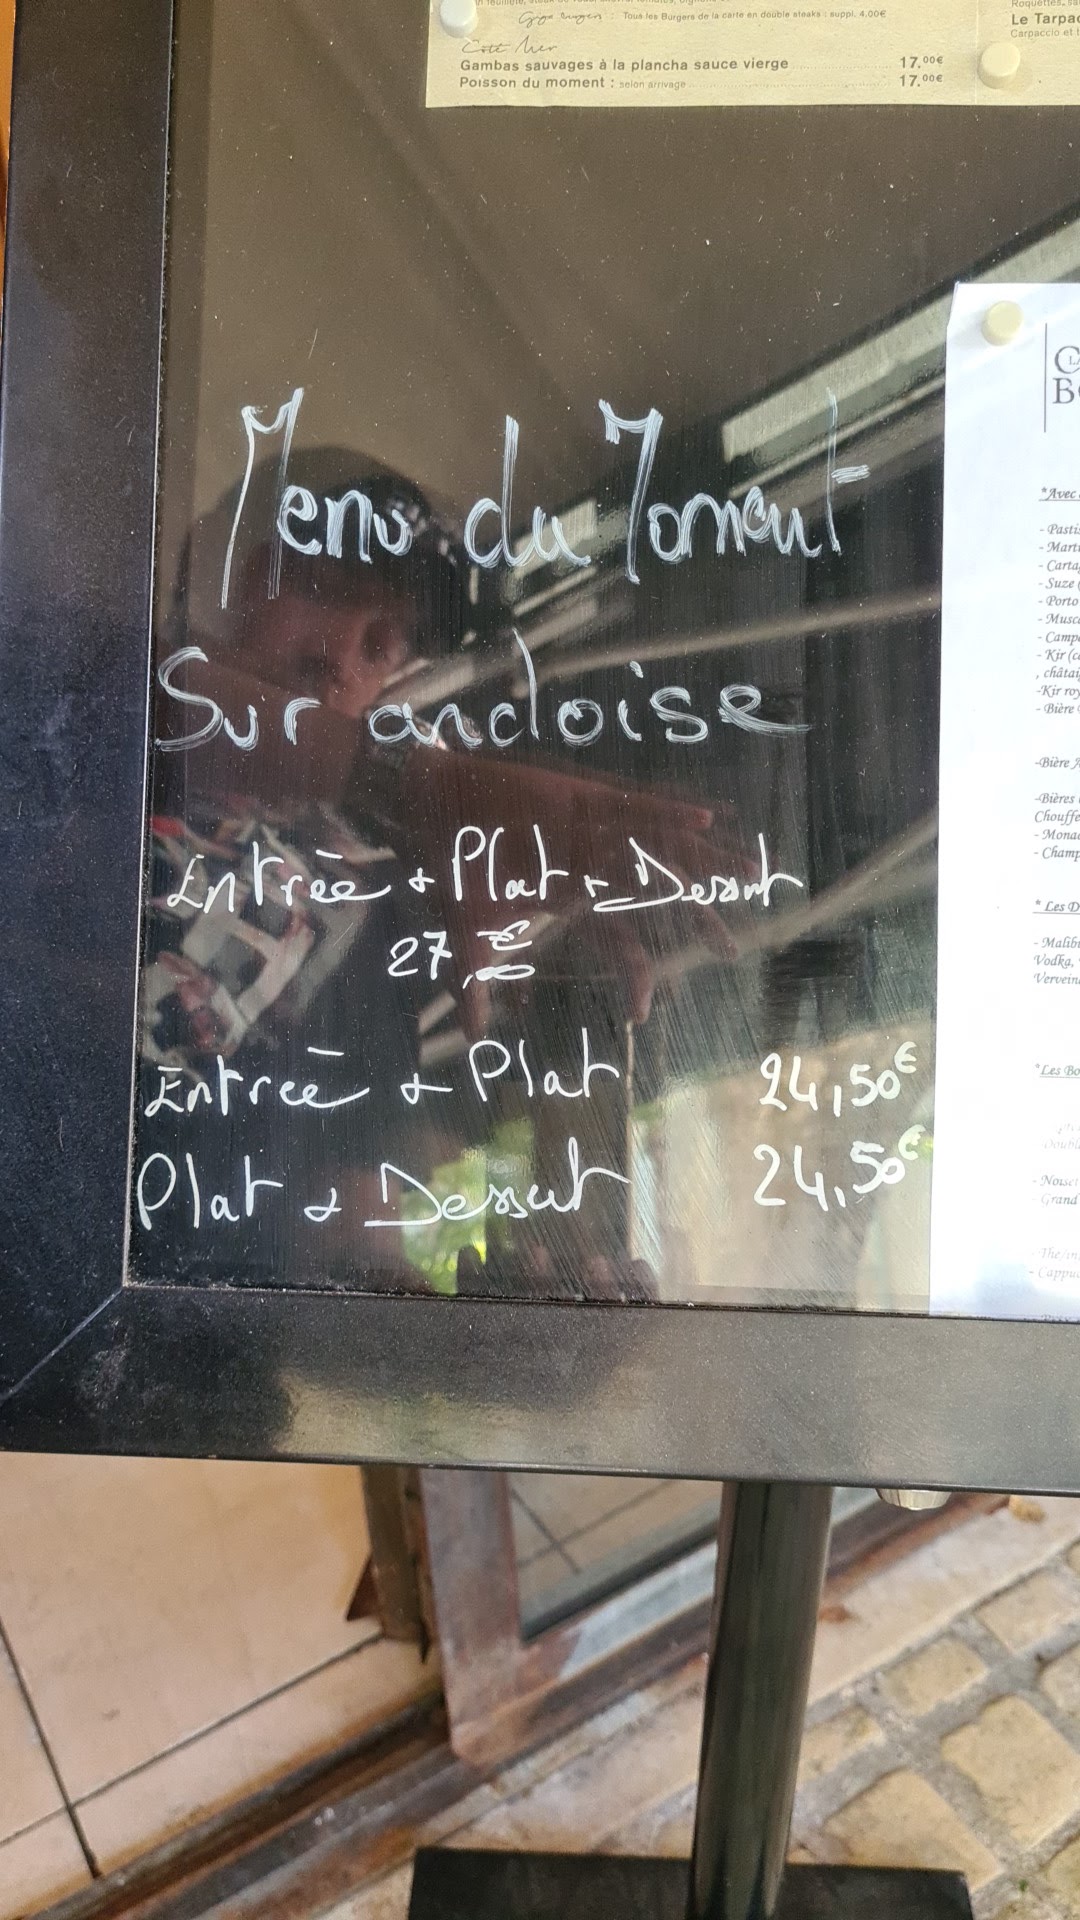 : Tous les Burgers de la carte en double steaks : suppl. 4,00€
Côté Mer
Gambas sauvages à la plancha sauce vierge 17,00€
Poisson du moment : selon arrivage 17,00€
Roquettes,
Le Tarpa
Carpaccio et
Menu du Moment
Sur ardoise
Entrée + Plat + Dessert
27,00€
Entrée & Plat 24,50€
Plat & Dessert 24,50€
*Avec
- Pastis
- Marti
- Carta
- Suze (
- Porto
- Musca
- Campa
- Kir (c
, châtai
-Kir roy
- Bière
-Bière A
-Bières
Chouffe
- Mona
- Champ
* Les D
- Malib
Vodka,
Vervein
*Les Bo
Double
- Noiset
- Grand
- The/in
- Cappuc